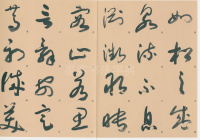 如松之盛
流不息
淵澄取映
容止若思
言辭安定
篤初誠美